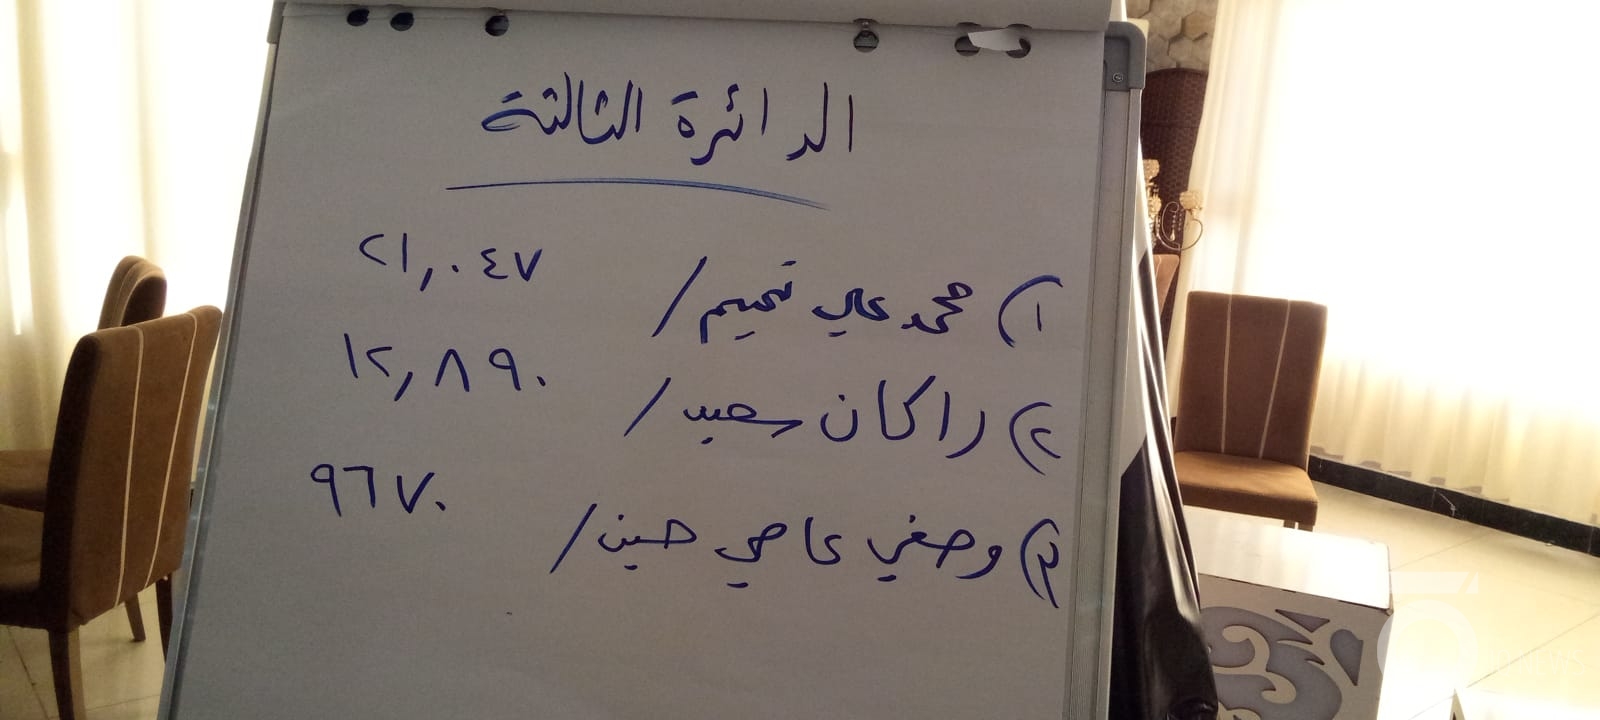 الدائرة الثالثة
١) محمد علي تميم / ٢١,٠٤٧
٢) راكان سعيد / ١٢,٨٩٠
٣) وصفي عاصي حسين / ٩٦٧٠